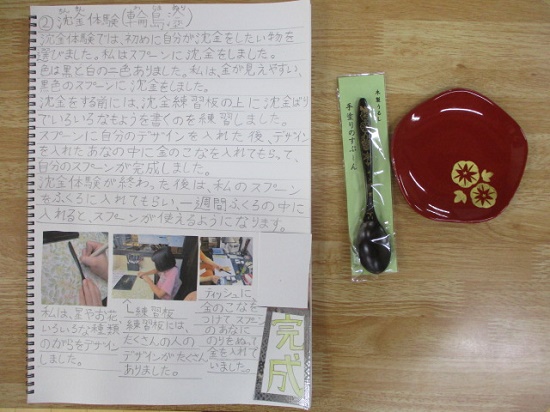 ②沈金体験(輪島塗)
ちん きん たい けん わ じま ぬり
沈金体験では、初めに自分が沈金をしたい物を
選びました。私はスプーンに沈金をしました。
色は黒と白の二色ありました。私は、金が見えやすい、
黒色のスプーンに沈金をしました。
沈金をする前には、沈金練習板の上に沈金ぼり
でいろいろなもようを書くのを練習しました。
スプーンに自分のデザインを入れた後、デザイン
を入れたあなの中に金のこなを入れてもらって、
自分のスプーンが完成しました。
沈金体験が終わった後は、私のスプーン
をふくろに入れてもらい、一週間ふくろの中に
入れると、スプーンが使えるようになります。
私は、星やお花
いろいろな種類
のがらをデザイン
しました。
練習板
練習板には、
たくさんの人の
デザインがたくさん
ありました。
ティッシュに
金のこなを
つけてスプーン
のあなに
のりをぬって
金を入れて
いました。
完成
木製うるし
手塗りのすぷーん